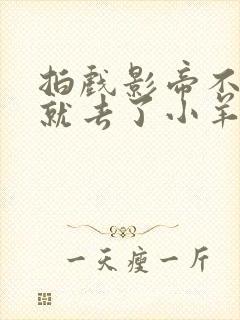 拍戏影帝不
就去了小羊
一天瘦一斤